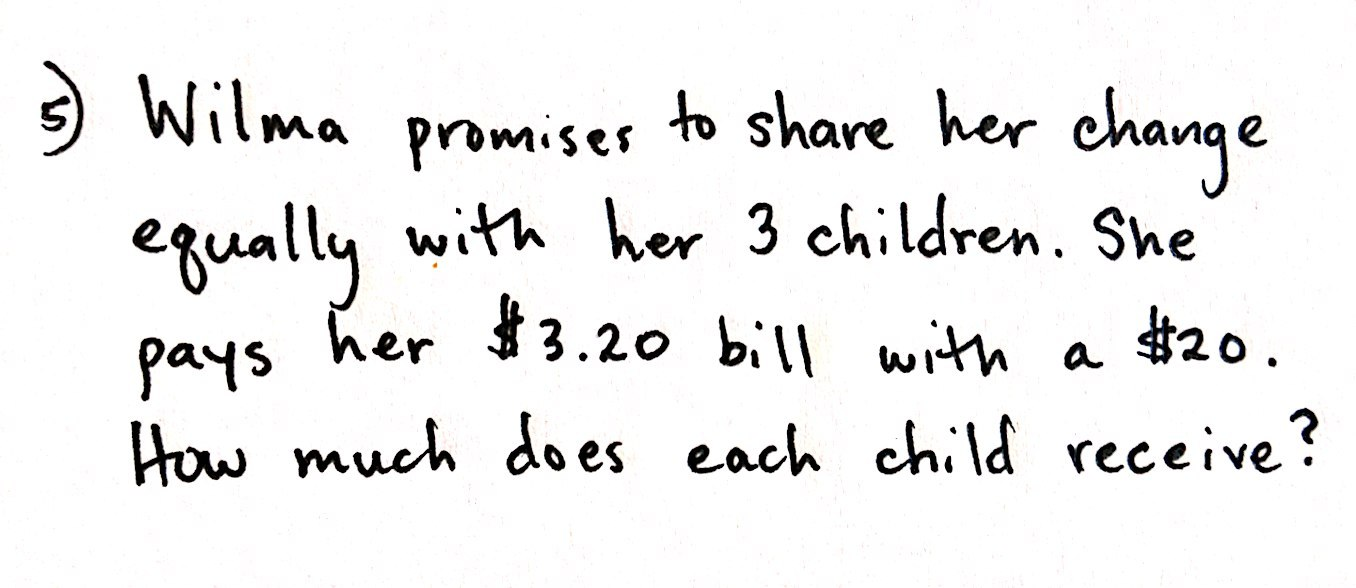 5) Wilma promises to share her change
equally with her 3 children. She
pays her $3.20 bill with a $20.
How much does each child receive?